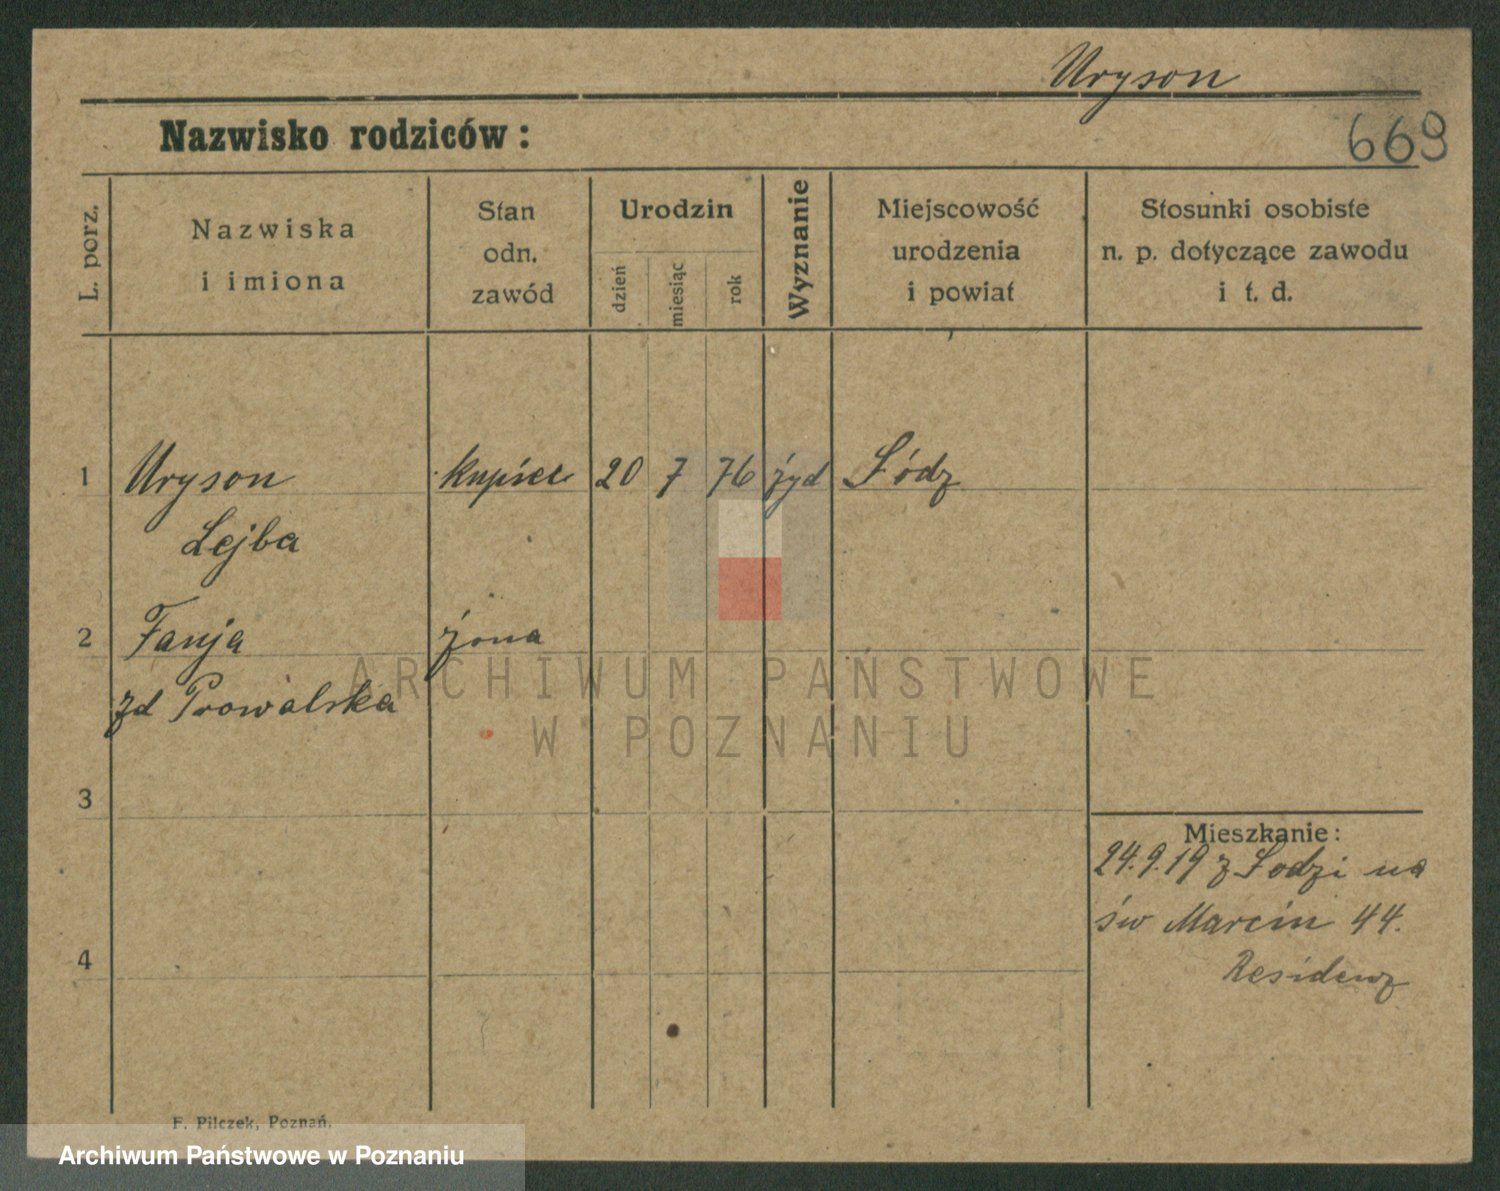 Uryson
669
Nazwisko rodziców:
L. porz.
Nazwiska
i imiona
Stan
odn.
zawód
Urodzin
dzień
miesiąc
rok
Wyznanie
Miejscowość
urodzenia
i powiat
Stosunki osobiste
n. p. dotyczące zawodu
i t. d.
1 Uryson kupiec 20 7 76 żyd Łódz
Lejba
2 Fanja żona
zd Prowalska
ARCHIWUM PAŃSTWOWE
W POZNANIU
3
Mieszkanie:
24.9.19 z Łodzi na
św Marcin 44.
4
Residenz
F. Pilczek, Poznań.
Archiwum Państwowe w Poznaniu